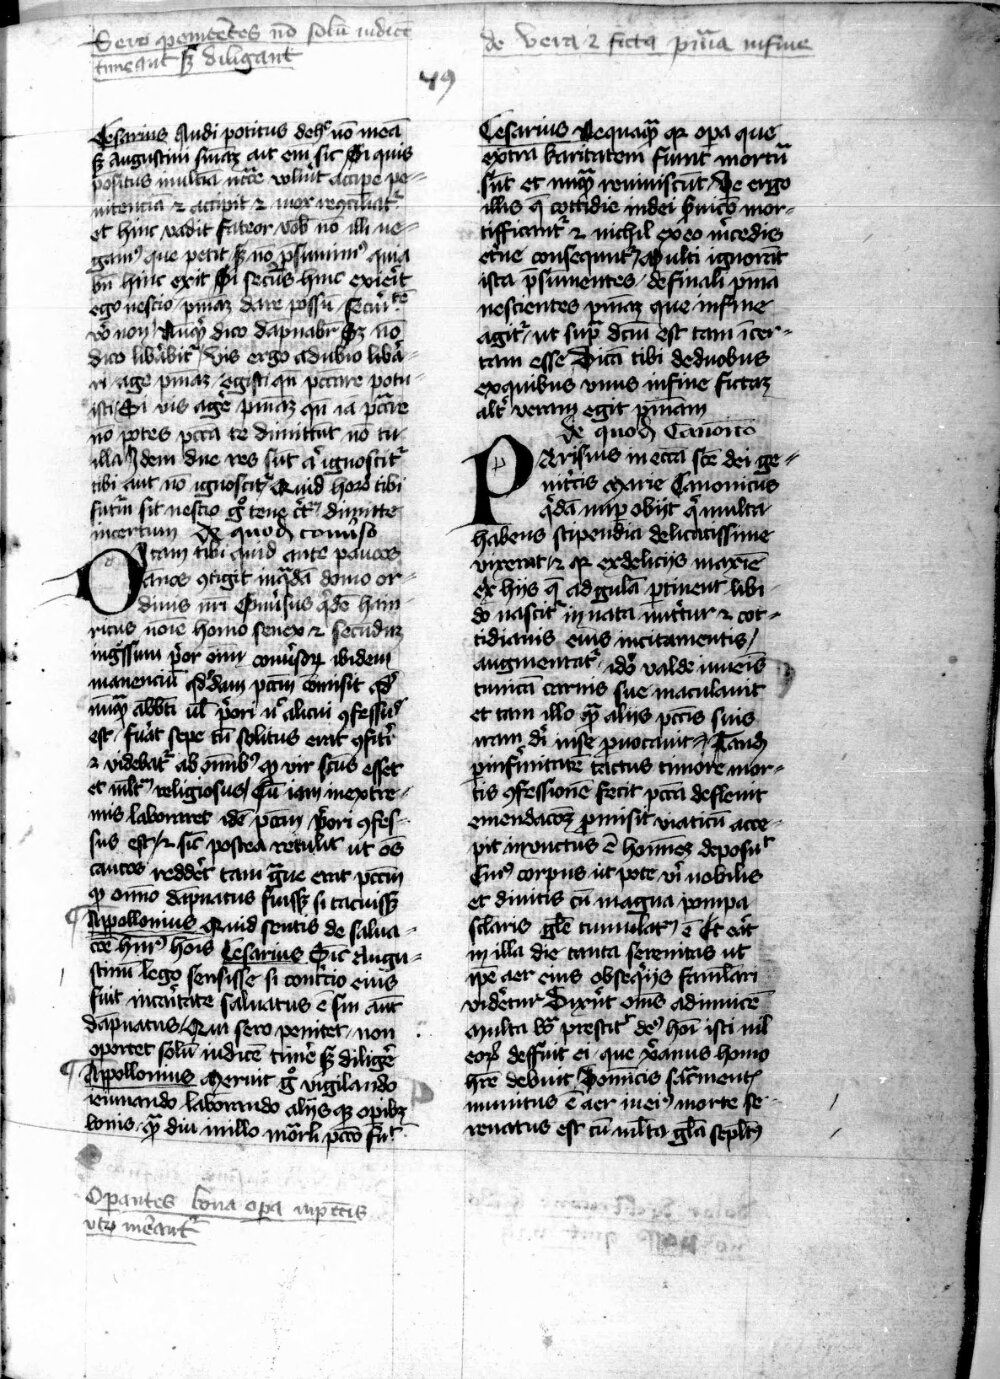 Sero penitētes nō solū iudicē
timeant sʒ diligant
de vera ⁊ ficta pn̄ia in fine
49
Cesarius Audi potitus dehꝰ nō meā
sʒ Augustini sn̄iaꝫ ait em̄ sic Si quis
positus in ultīa nc̄c̄e voluit̄ accipe pe-
nitenciā ⁊ accipit ⁊ mox recōciliat̄
et hinc vadit fateor vob̄ nō illi ne-
gamꝰ que petit sʒ nō p̄sumimꝰ quia
bn̄ hinc exit Si secūs hinc exierit
ego nescio / pn̄iaꝫ dare possū / secūtē
v̊o non / Nūq̄ dico dāpnabr̄ Sʒ nō
dico lib̄abit̄ / Vis ergo a dubio lib̄a-
ri age pn̄iaꝫ / egisti qn̄ pccare potu-
isti / Si vis age pn̄iaꝫ qn̄ iā pc̄are
nō potes pcc̄a te dimittūt nō tu
illa Idem due res sūt aͭ ignoscit̄
tibi aut nō ignoscit̄ Quid horꝝ tibi
futur̄ sit nescio gͦ tene c̄tꝰ / dimitte
incertum De quod̄ conuerso
Octam tibi quid ante paucos
ānos ꝯtigit in q̄dā domo or-
dinis nr̄i Conu̓sus q̄dē hain-
ricus noīe homo senex ⁊ secundꝫ
ing̓ssum p̓or om̄ conu̓sorꝝ ibidem
manenciū q̄ddam pccm̄ comisit qd̄
nūq̄ abb̄ti ul̓ p̓ori ul̓ alicui ꝯfessuꝰ
est / fu̓at sepe cū solitus erat ꝯfit̓i
⁊ videbat̄ ab om̄ibꝰ qͦ vir sc̄us esset
et mltm̄ religiosus / Cū iam in extre-
mis laboraret idē pccm̄ p̓ori ꝯfes-
sus est / ⁊ sic̄ postea retulit ut os̄
cautos reddet̄ tam gͣue erat pccm̄
qͦ om̄īo dāpnatus fuisʒ si tacuisʒ
Appollonius Quid sentis de salua-
cōe hꝰm̄ hoīs Cesarius Sic̄ Augu-
stinū lego sensisse si contc̄io eius
fuit in caritate saluatus ē sin aut̄
dāpnatus / Qui sero penitet / non
oportet solū iudicē time̓ sʒ dilige̓
Appollonius Meruit gͦ vigilando
ieiunando laborando alijsqꝫ opibꝫ
bonis qͣ diu in illo mor̄li pccō fuͭ
Cesarius Nequaqͣ qꝛ opa que
extra karitatem fiunt mortua
sūt et nūqͣ reuiuiscūt / Ve ergo
illis q̄ cottidie in dei s̓uicō mor-
tifficant̄ ⁊ nichil ex eo m̓cedis
et̓ne consequunt̄ / Multi ignorāt
ista p̄sumentes / de finali pn̄ia
nescientes pn̄iaꝫ que in fine
agit̄ / ut supͣ dc̄m est tam īcer-
tam esse Dicā tibi de duobus
ex quibus vnus in fine fictaꝫ
alt̓ veram egit pn̄iam
de quod̄ Canonico
Parisius in eccā sc̄e dei ge-
nit̓cis Marie Canonicus
q̄dā nup̄ obijt qͥ multa
habens stipendia delicatissime
vixerat / ⁊ qꝛ ex delicijs maxīe
ex hijs q̄ ad gulā ꝑtinent libi-
do nascit̄ ī nata nut̓tur ⁊ cot-
tidianis eius incitamentis /
augmentat̄ / ido̓ valde iuuenis
tunicā carnis sue maculauit
et tam illo qͣ alijs pccīs suis
iram di̓ in se ꝓuocauit / Tand̄
ꝑ infirmitatē tāctus timore mor-
tis ꝯfessionē fecit pcc̄a defleuit
emendacōꝫ ꝓmisit viaticū acce-
pit in vnctus ē hoīneꝫ deposuͭ
Cuiꝰ corpus ut pote vi̓ nobilis
et diuitis cū magna pompa
sclāris gl̄e tumulatꝰ ē Et ea̓t
in illa die tanta serenitas ut
ip̄e aer eius obseq̓js famlari
videt̓ur Dixe̓t om̄s ad inuicē
Multa bo̓ prestitͭ deꝰ hoī isti nil
eorꝝ deffuit ei que xr̄anus homo
hr̄e debuit Dominicis sac̓mentꝭ
munitus ē aer in eiꝰ morte se-
renatus est cū ml̄ta gl̄a sepltꝰ
Operantes bona opa in pccīs
vtꝝ mēant̄